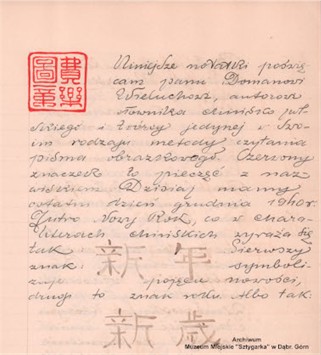 Niniejsze notatki poświę-
cam panu Domanowi
Wieluchowi, autorowi
słownika chińsko pol-
skiego i twórcy jedynej w swo-
im rodzaju metody czytania
pisma obrazkowego. Czerwony
znaczek to pieczęć z naz-
wiskiem. Dzisiaj mamy
ostatni dzień grudnia 1940r.
Jutro Nowy Rok, co w chara-
kterach chińskich wyraża się
tak: 新年 Pierwszy
znak symboli-
zuje pojęcie nowości,
drugi to znak roku. Albo tak:
新歳
Archiwum
Muzeum Miejskie "Sztygarka" w Dąbr. Górn